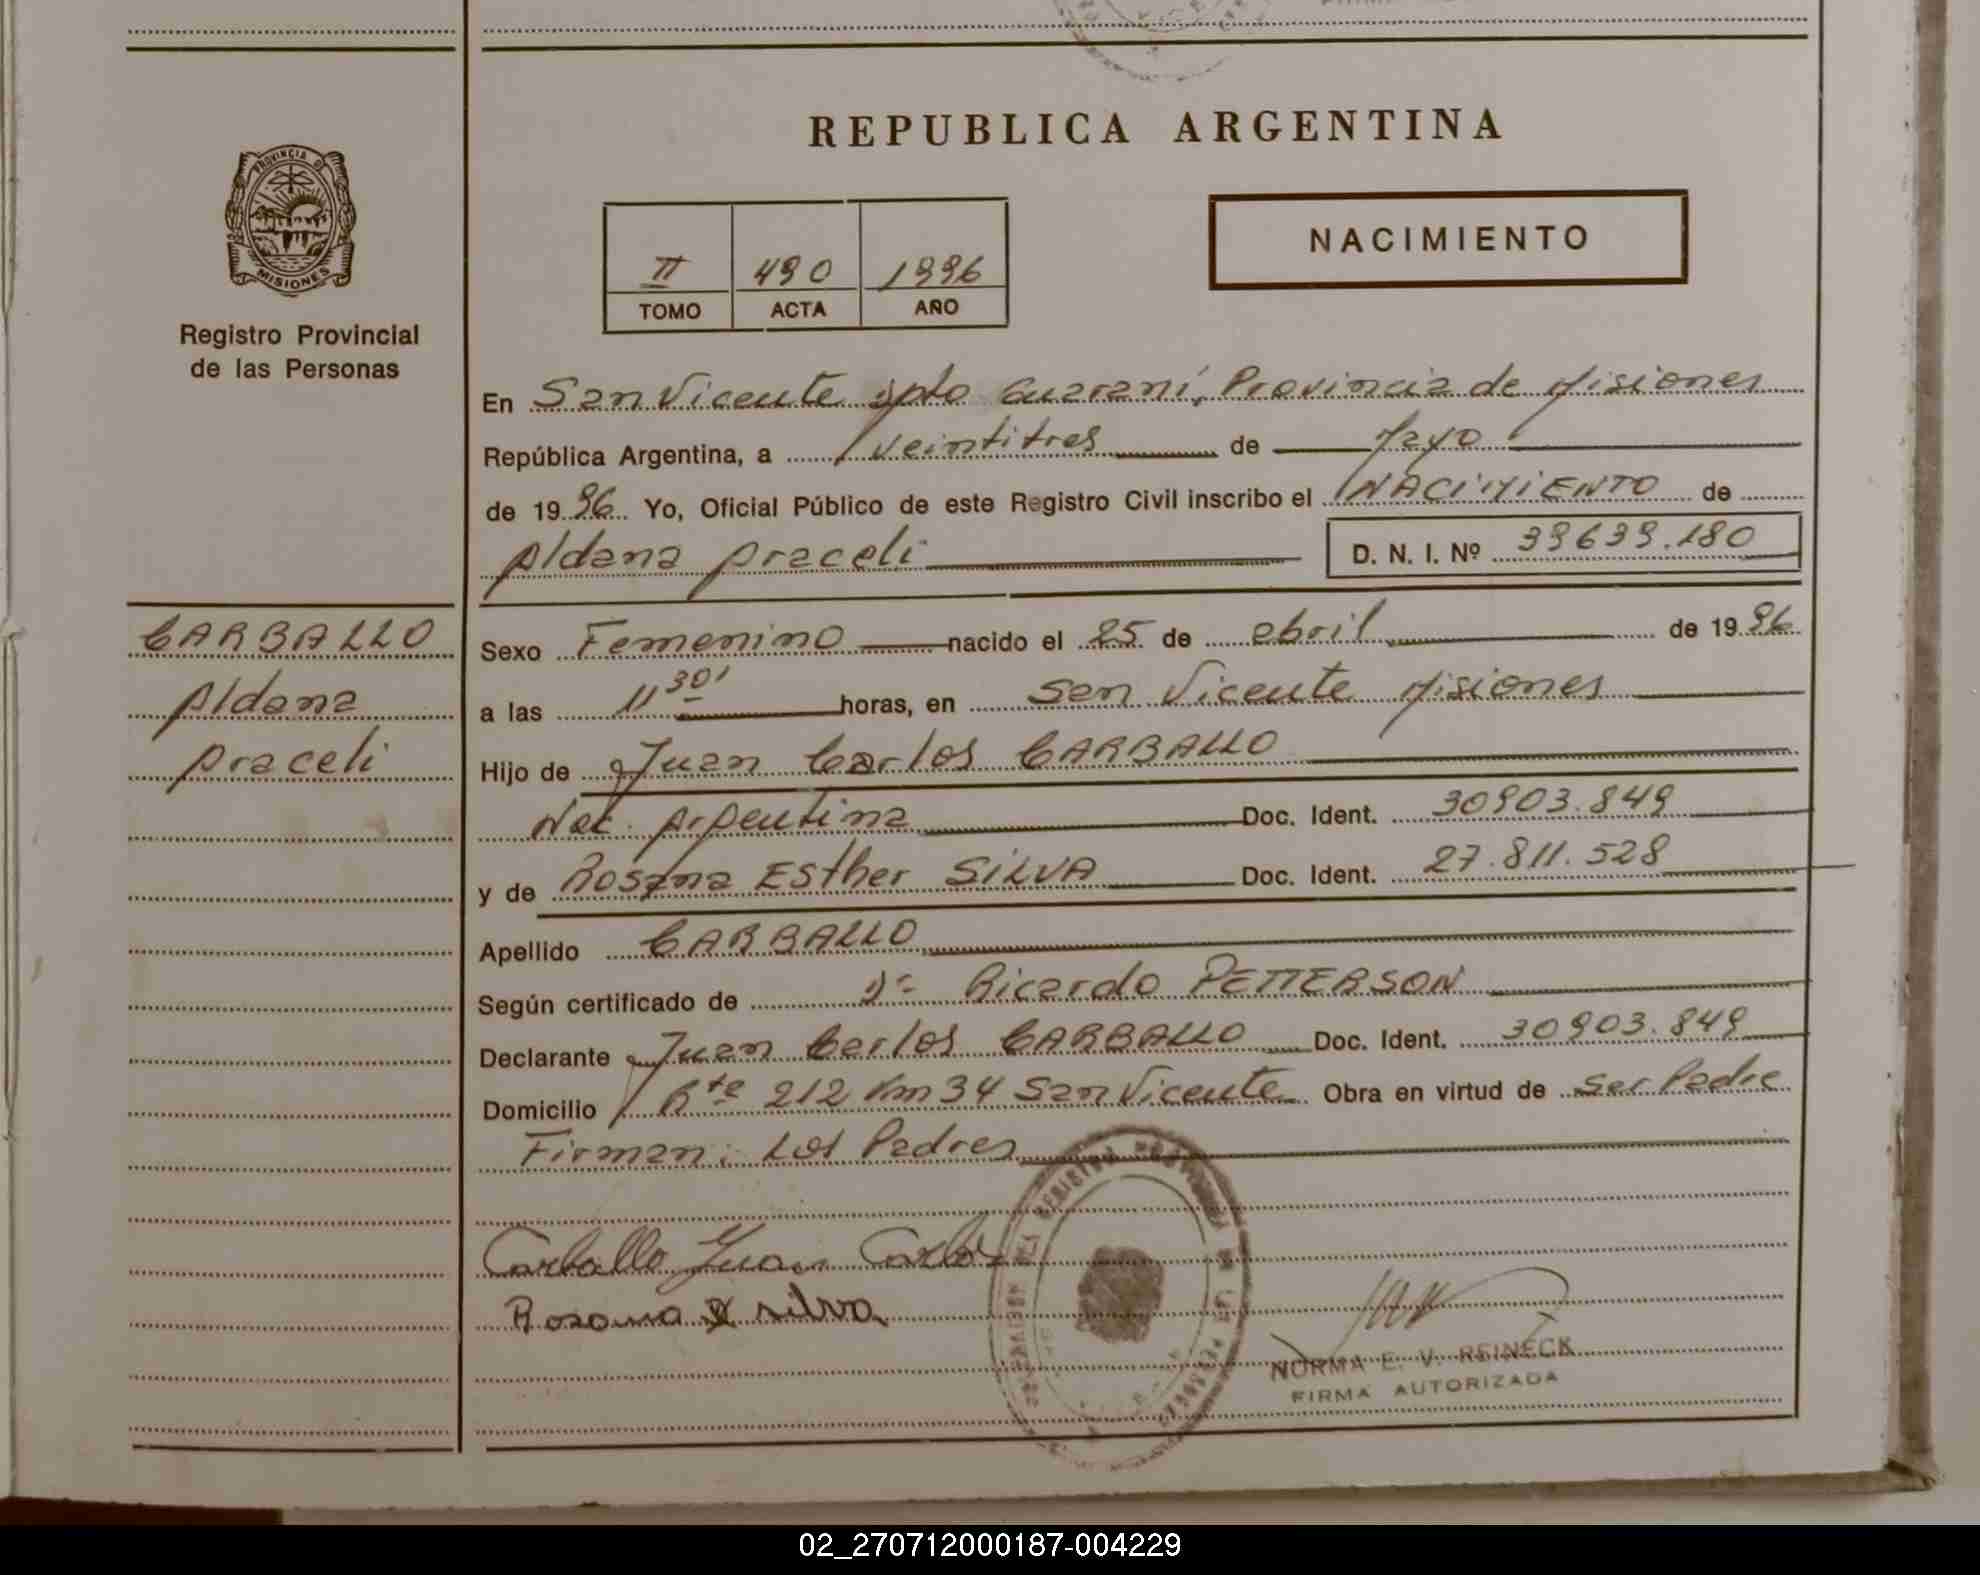 REPUBLICA ARGENTINA
PROVINCIA D
MISIONES
Registro Provincial
de las Personas
II 490 1996
TOMO ACTA AÑO
NACIMIENTO
En San Vicente dpto Guaraní, Provincia de Misiones
República Argentina, a veintitres de Mayo
de 1996 Yo, Oficial Público de este Registro Civil inscribo el NACIMIENTO de
Aldana Araceli D. N. I. Nº 39639.180
CARBALLO
Aldana
Araceli
Sexo Femenino nacido el 25 de abril de 1996
a las 11 30' horas, en San Vicente Misiones
Hijo de Juan Carlos CARBALLO
Nac. Argentina Doc. Ident. 30903.849
y de Rosana Esther SILVA Doc. Ident. 27.811.528
Apellido CARBALLO
Según certificado de Dr Ricardo PETTERSON
Declarante Juan Carlos CARBALLO Doc. Ident. 30903.849
Domicilio Rta 212 Km 34 San Vicente Obra en virtud de ser Padre
Firman: Los Padres
Carballo Juan Carlos
Rosana E silva
NORMA E. V. REINECK
FIRMA AUTORIZADA
02_270712000187-004229